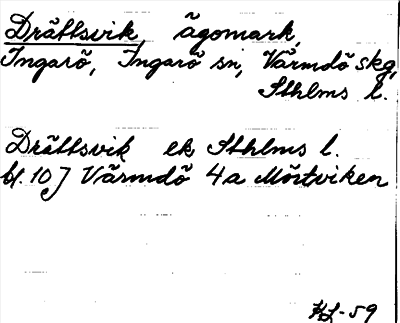 Drättsvik ägomark,
Ingarö, Ingarö sn, Värmdö skg,
Sthlms l.
Drättsvik ek Sthlms l.
bl. 107 Värmdö 4a Mörtviken
HL-59